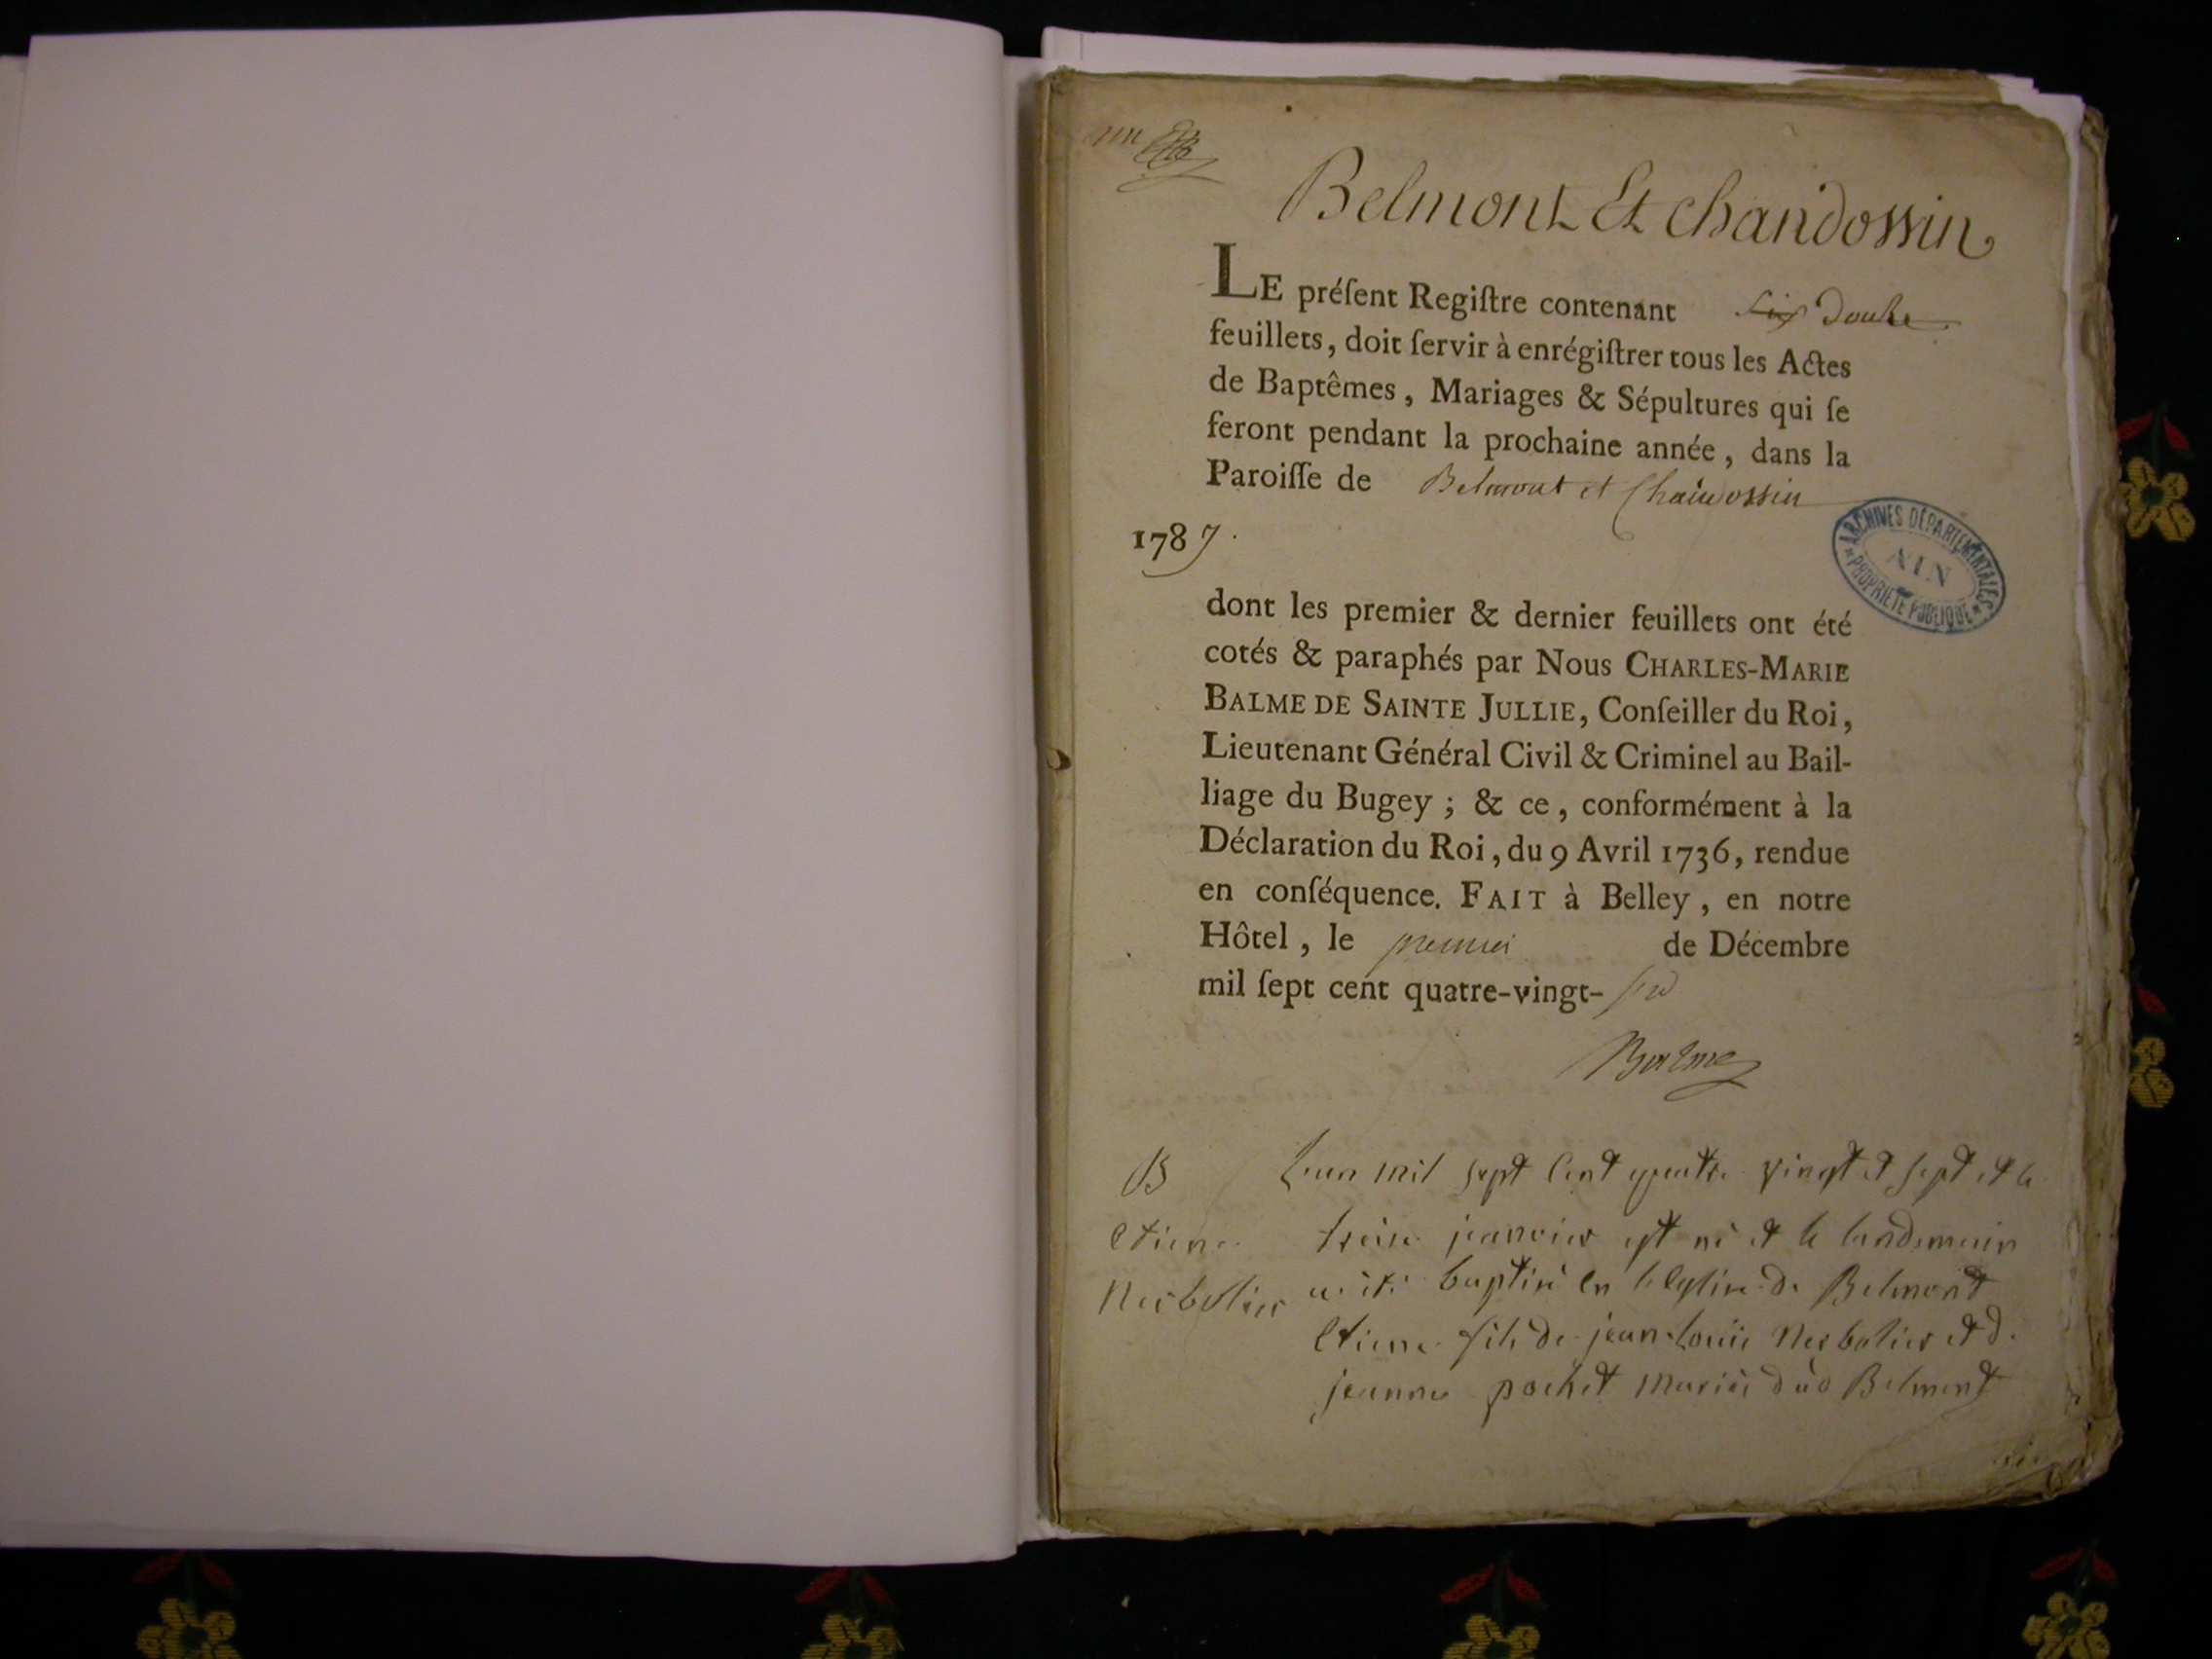 un
Belmont Et chandossin
LE préſent Regiſtre contenant six douze
feuillets, doit ſervir à enrégiſtrer tous les Actes
de Baptêmes, Mariages & Sépultures qui ſe
feront pendant la prochaine année, dans la
Paroiſſe de Belmont et Chandossin
1787.
ARCHIVES DÉPARTEMENTALES
AIN
PROPRIÉTÉ PUBLIQUE
dont les premier & dernier feuillets ont été
cotés & paraphés par Nous CHARLES-MARIE
BALME DE SAINTE JULLIE, Conſeiller du Roi,
Lieutenant Général Civil & Criminel au Bail-
liage du Bugey ; & ce, conformément à la
Déclaration du Roi, du 9 Avril 1736, rendue
en conſéquence. FAIT à Belley, en notre
Hôtel, le premier de Décembre
mil ſept cent quatre-vingt-six
Balme
B
etiene
Nerbolier
Lan mil sept Cent quatre vingt et sept et le
treise janvier est né et le landemain
a été baptisé en leglise de Belmont
Etiene fils de jean Louis Nerbolier et de
jeanne pochet mariés dud Belmont